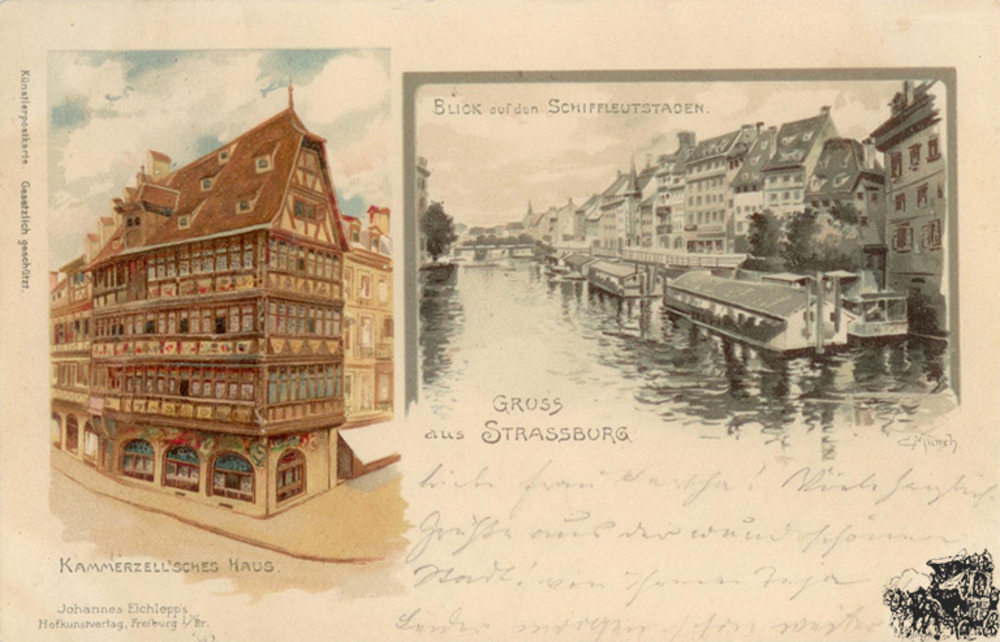 Künstlerpostkarte. Gesetzlich geschützt.
BLICK auf den SCHIFFLEUTSTADEN.
GRUSS
aus STRASSBURG
C. Münch
Liebe Frau Bertha! Viele herzliche
Grüße aus der wunderschönen
Stadt! von Ihrem
Leider schon weiter
KAMMERZELL'SCHES HAUS.
Johannes Elchlepp's
Hofkunstverlag, Freiburg i/Br.